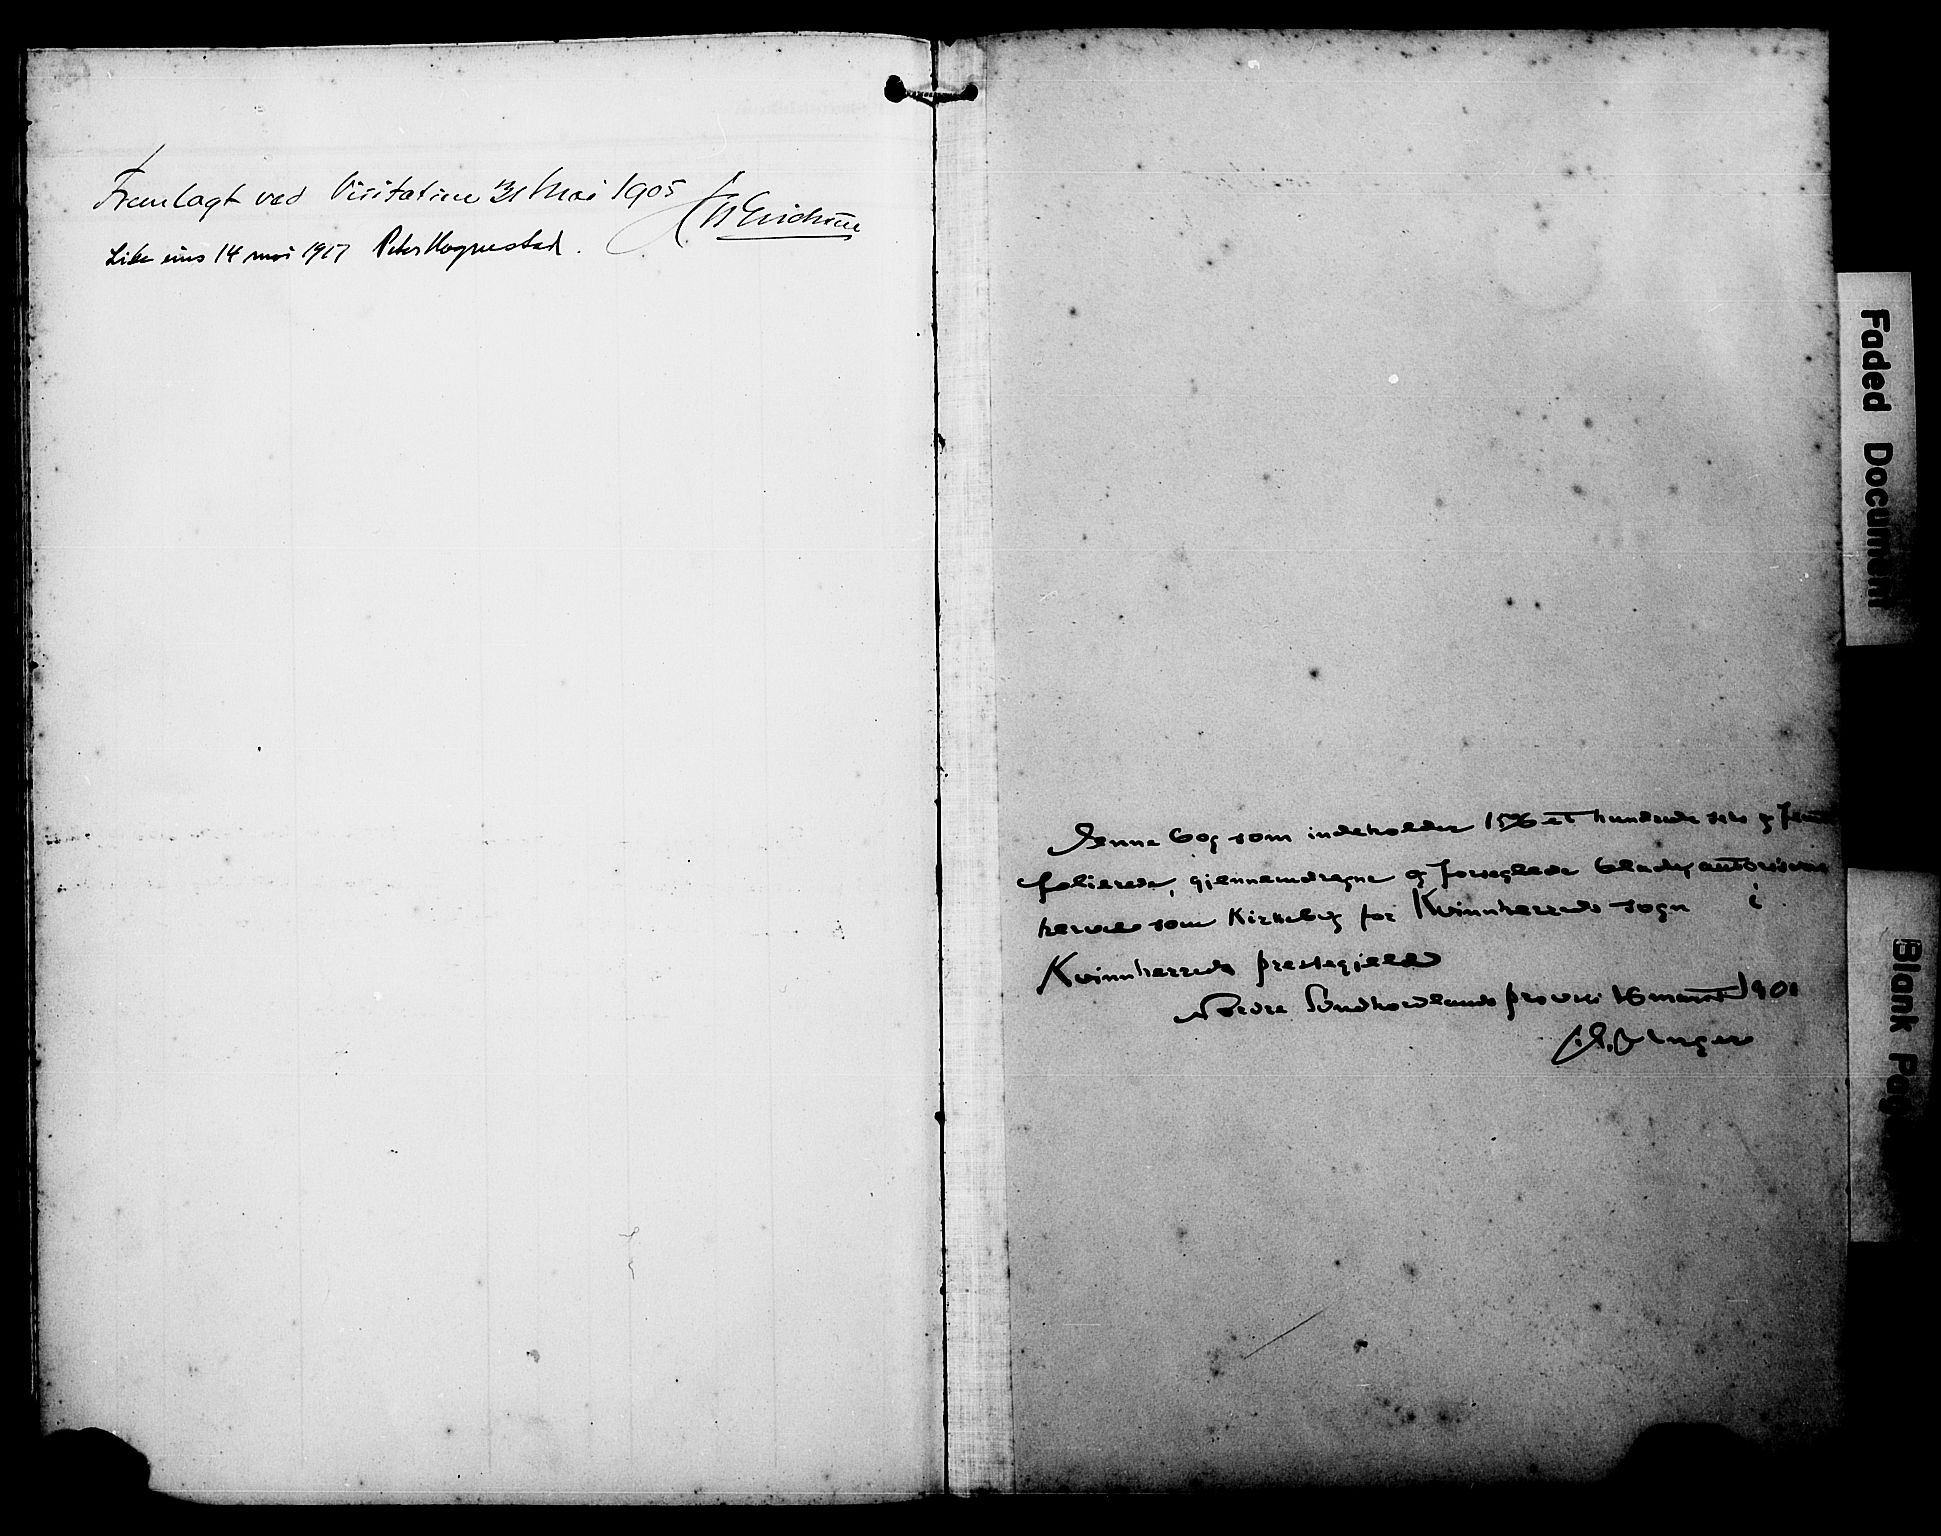 Fremlagt ved Visitatsen 31 Mai 1905 Erichsen
Like eins 14 mai 1917 Peter Hognestad.
Denne bog som indeholder 156 et hundrede seks og femti
folierede, gjennemdragne og forseglede blade, autoriseres
herved som Kirkebog for Kvinnherreds sogn i
Kvinnherreds prestegjeld
Nordre Søndhordlands provsti 16 marts 1901
Unger
Faded Document
Blank Pag